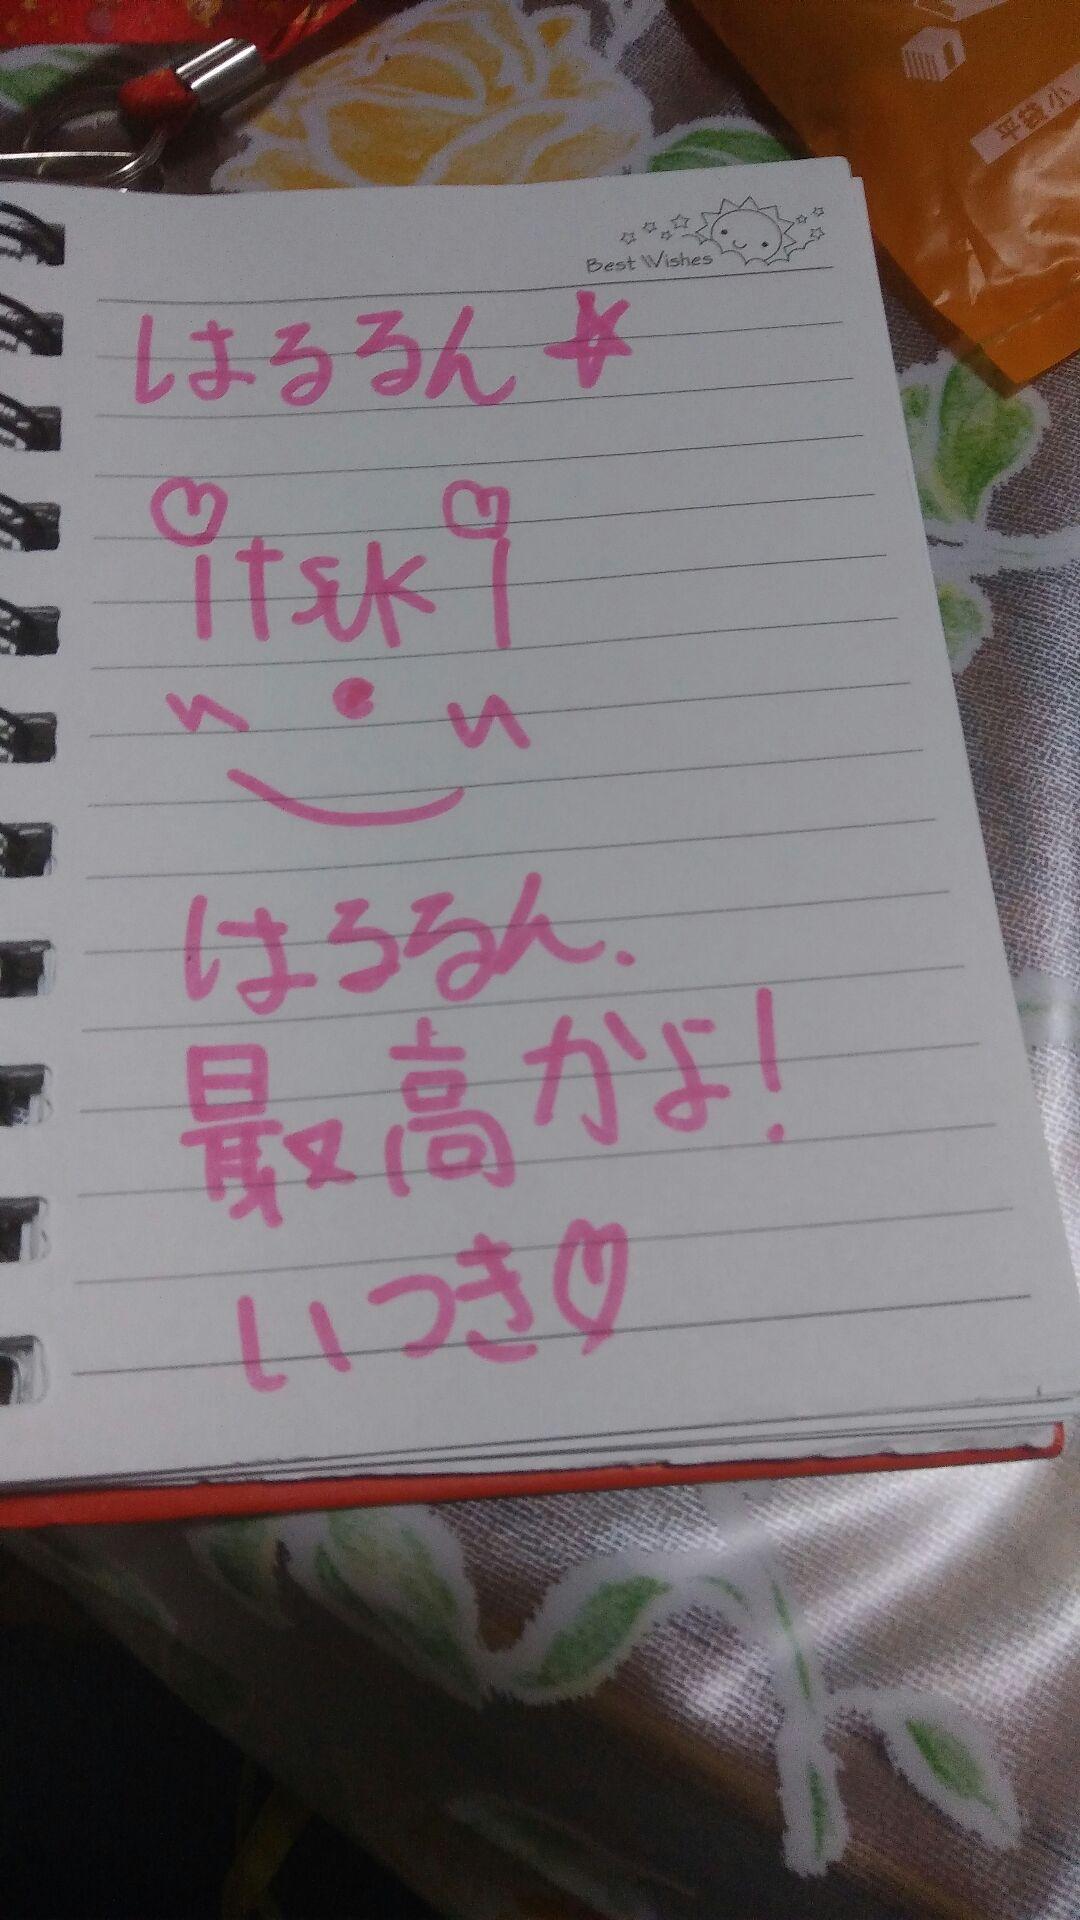 平袋小
Best Wishes
はるるん☆
itsuki
はるるん.
最高かよ!
いつき♡